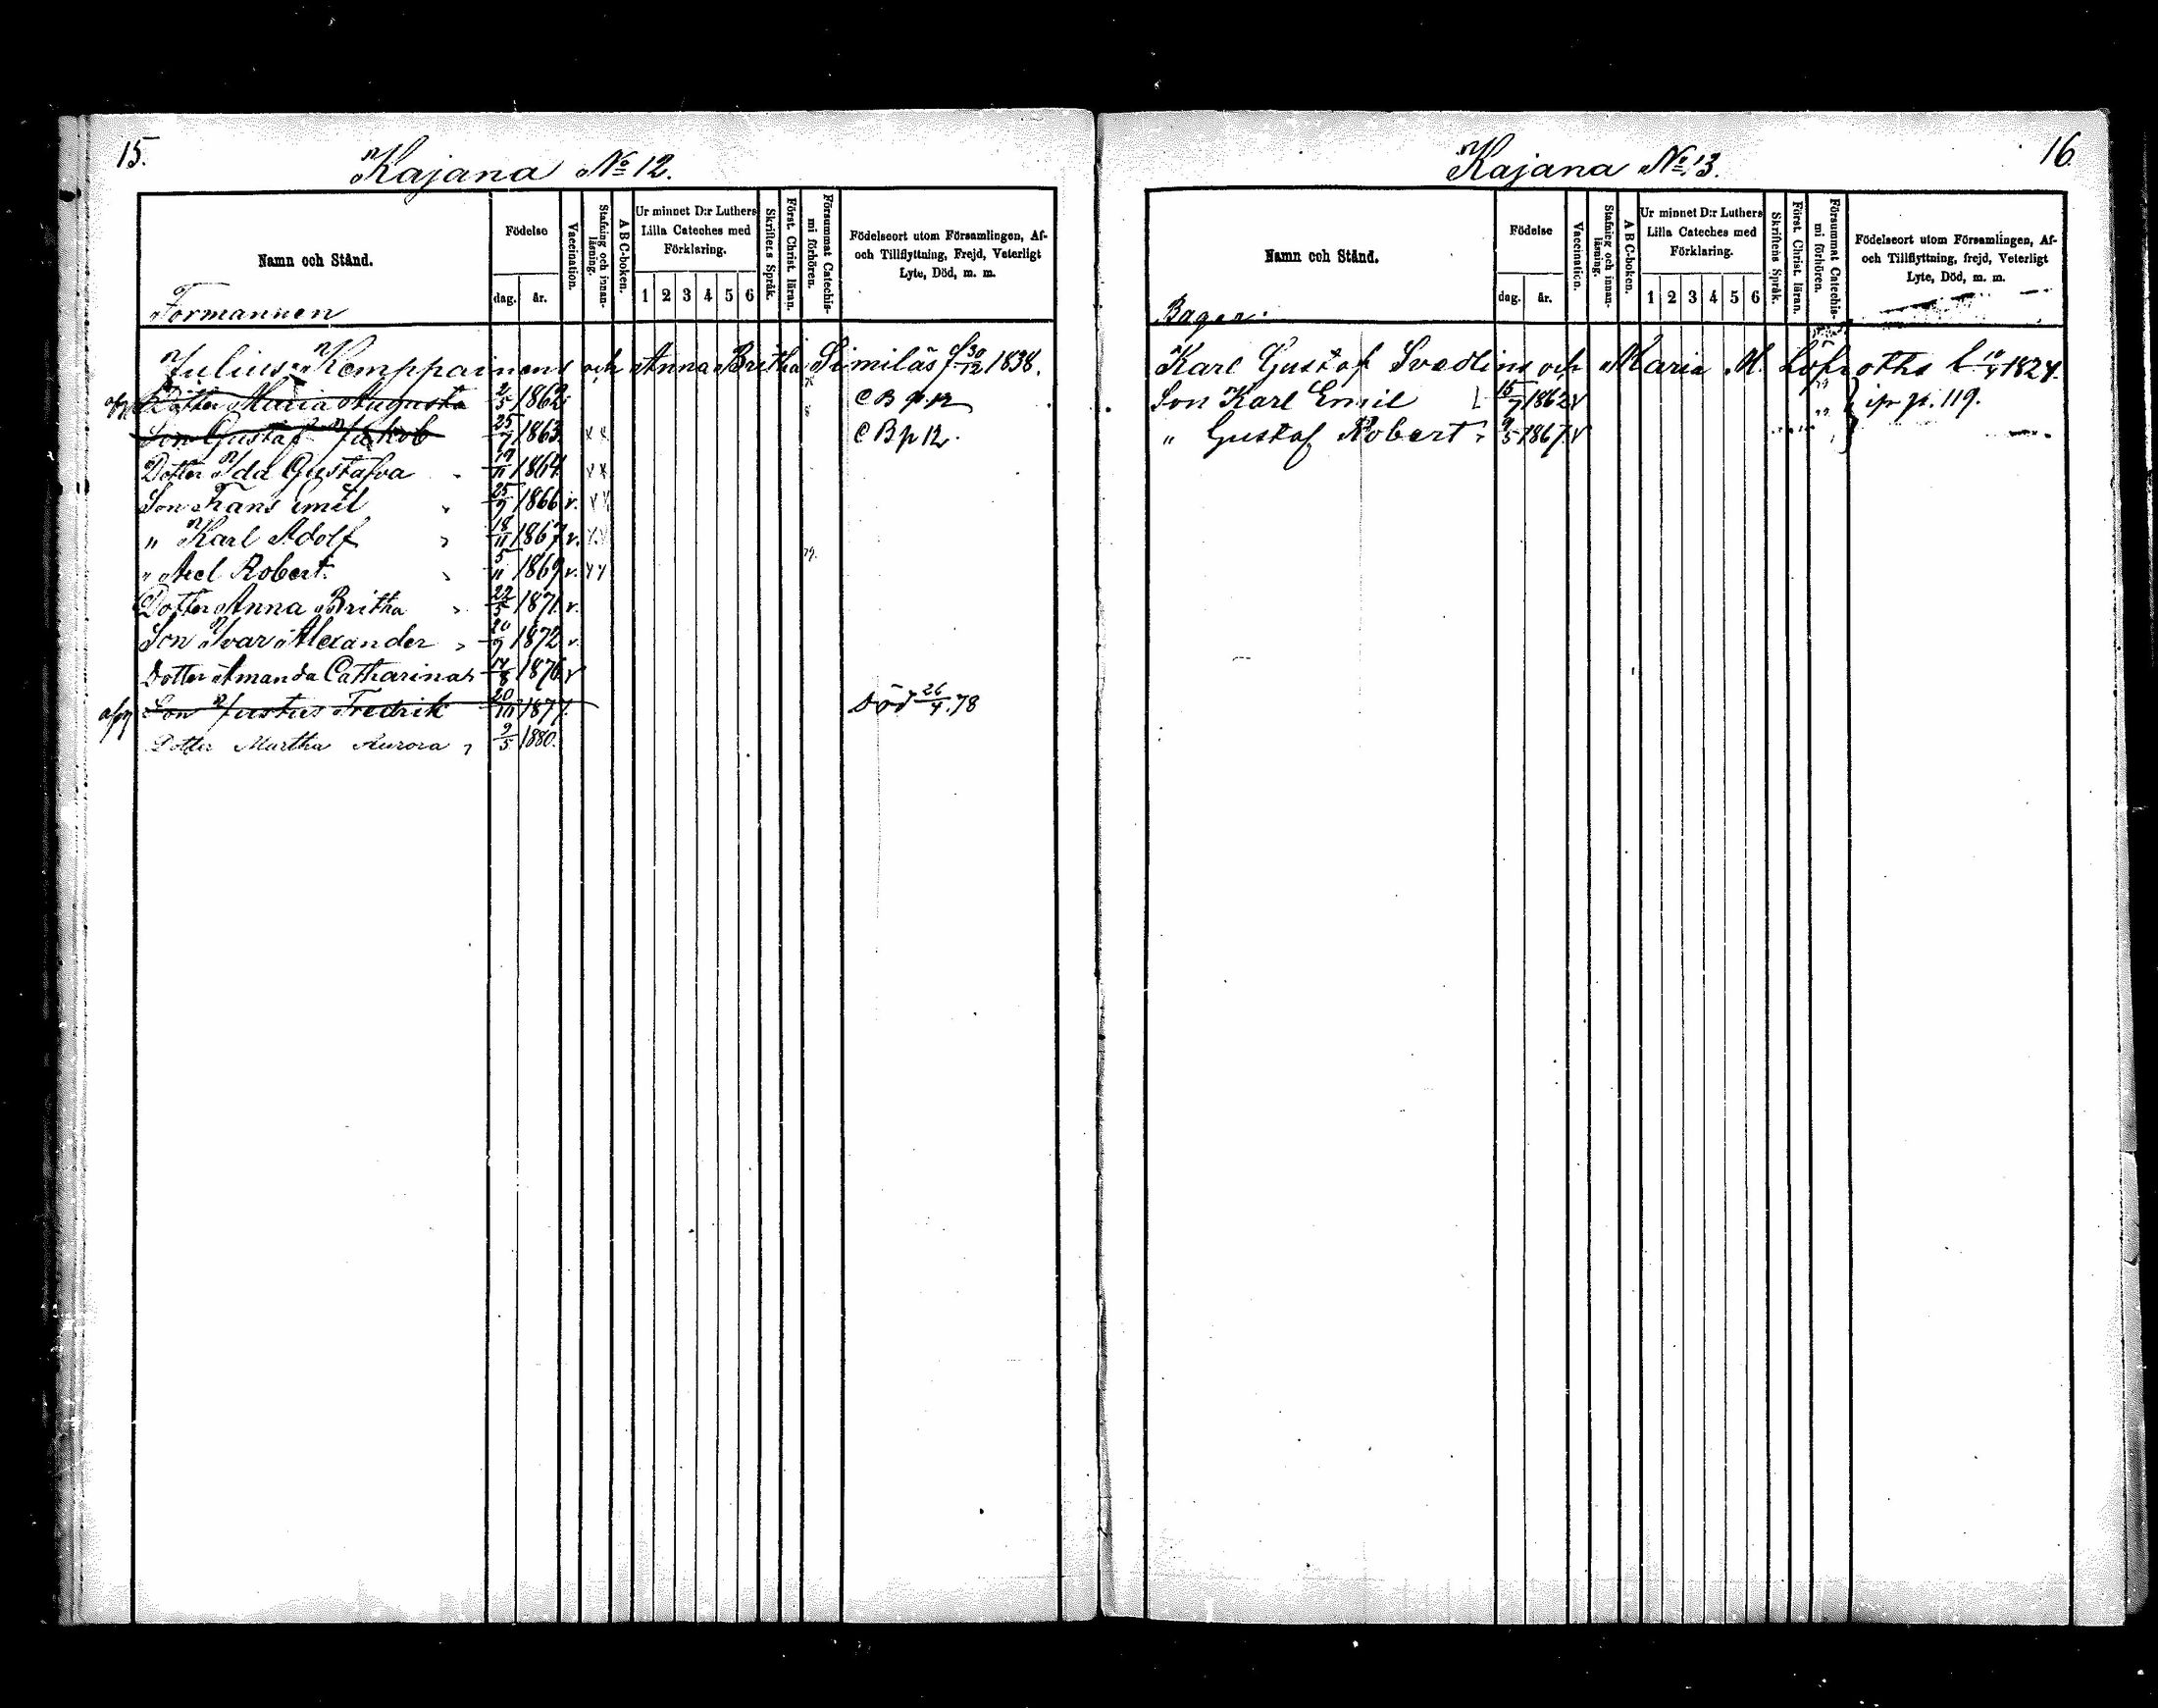 15.
Kajana No 12.
Namn och Stånd.
Födelse
dag. år.
Vaccination.
Stafning och innanläsning.
A B C-boken.
Ur minnet D:r Luthers Lilla Cateches med Förklaring.
1 2 3 4 5 6
Skriftens Språk.
Först. Christ. läran.
Försummat Catechismi förhören.
Födelseort utom Församlingen, Af- och Tillflyttning, Frejd, Veterligt Lyte, Död, m. m.
Formannen
Julius Kemppainens och Anna Britha Similäs f 30/12 1838.
Dotter Maria Augusta 2/5 1862 C B p. 12
Son Gustaf Jakob 25/7 1863 x x C B p 12.
Dotter Ida Gustafva 17/11 1864 x x
Son Frans Emil 25/9 1866 v. x x
" Karl Adolf 18/11 1867 v. x x
" Axel Robert. 5/11 1869 v. x x
Dotter Anna Britha 22/5 1871 v.
Son Ivar Alexander 20/9 1872 v.
Dotter Amanda Catharina 14/8 1876 v
Son Justus Fredrik 20/111 1877. Död 26/4.78
Dotter Martha Aurora 9/5 1880.
16.
Kajana No 13.
Namn och Stånd.
Födelse
dag. år.
Vaccination.
Stafning och innanläsning.
A B C-boken.
Ur minnet D:r Luthers Lilla Cateches med Förklaring.
1 2 3 4 5 6
Skriftens Språk.
Först. Christ. läran.
Försummat Catechismi förhören.
Födelseort utom Församlingen, Af- och Tillflyttning, frejd, Veterligt Lyte, Död, m. m.
Bagar.
Karl Gustaf Svedlins och Maria M. 1824.
Son Karl Emil 15/7 1862 v p. 119.
" Gustaf Robert 9/5 1867 v